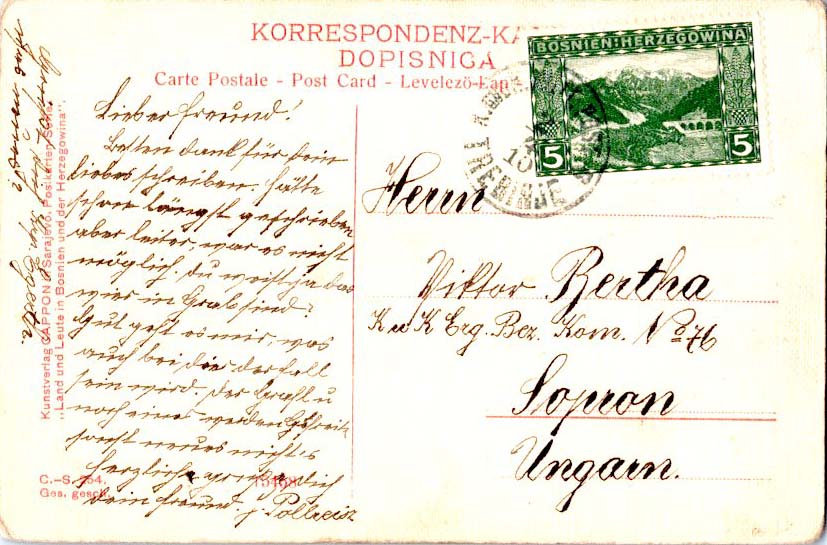 KORRESPONDENZ-KA
DOPISNICA
Carte Postale - Post Card - Levelező-Lap
BOSNIEN-HERZEGOWINA
5 5
TREBINJE
Lieber Freund!
Besten Dank für Dein
liebes Schreiben. Hätte
schon längst geschrieben
aber leider, war es nicht
möglich. Du weist ja das
wir in Grab sind?
Gut geht es mir, was
auch bei dir der Fall
sein wird. Der
noch eines werden
sonst neues nichts
Herzliche grüße Dich
Dein Freund J. Pollreisz
Kunstverlag CAPPON Sarajevo. Postkarten-Serie:
„Land und Leute in Bosnien und der Herzegowina".
C.-S. 254.
Ges. gesch.
15468
Herrn
Viktor Bertha
K u K Erg. Bez. Kom. No 76
Sopron
Ungarn.